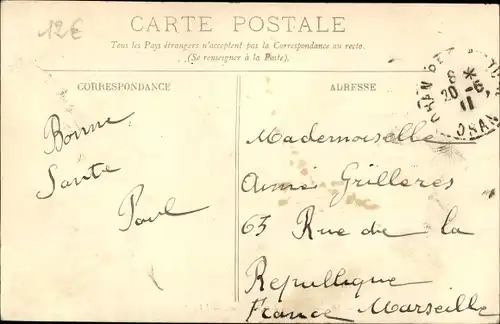 12€
CARTE POSTALE
Tous les Pays étrangers n'acceptent pas la Correspondance au recto.
(Se renseigner à la Poste).
CORRESPONDANCE
ADRESSE
ORAN
20 -6
11
ORAN
Bonne
Sante
Paul
Mademoiselle
Grilleres
63 Rue de la
Republlique
France Marseille